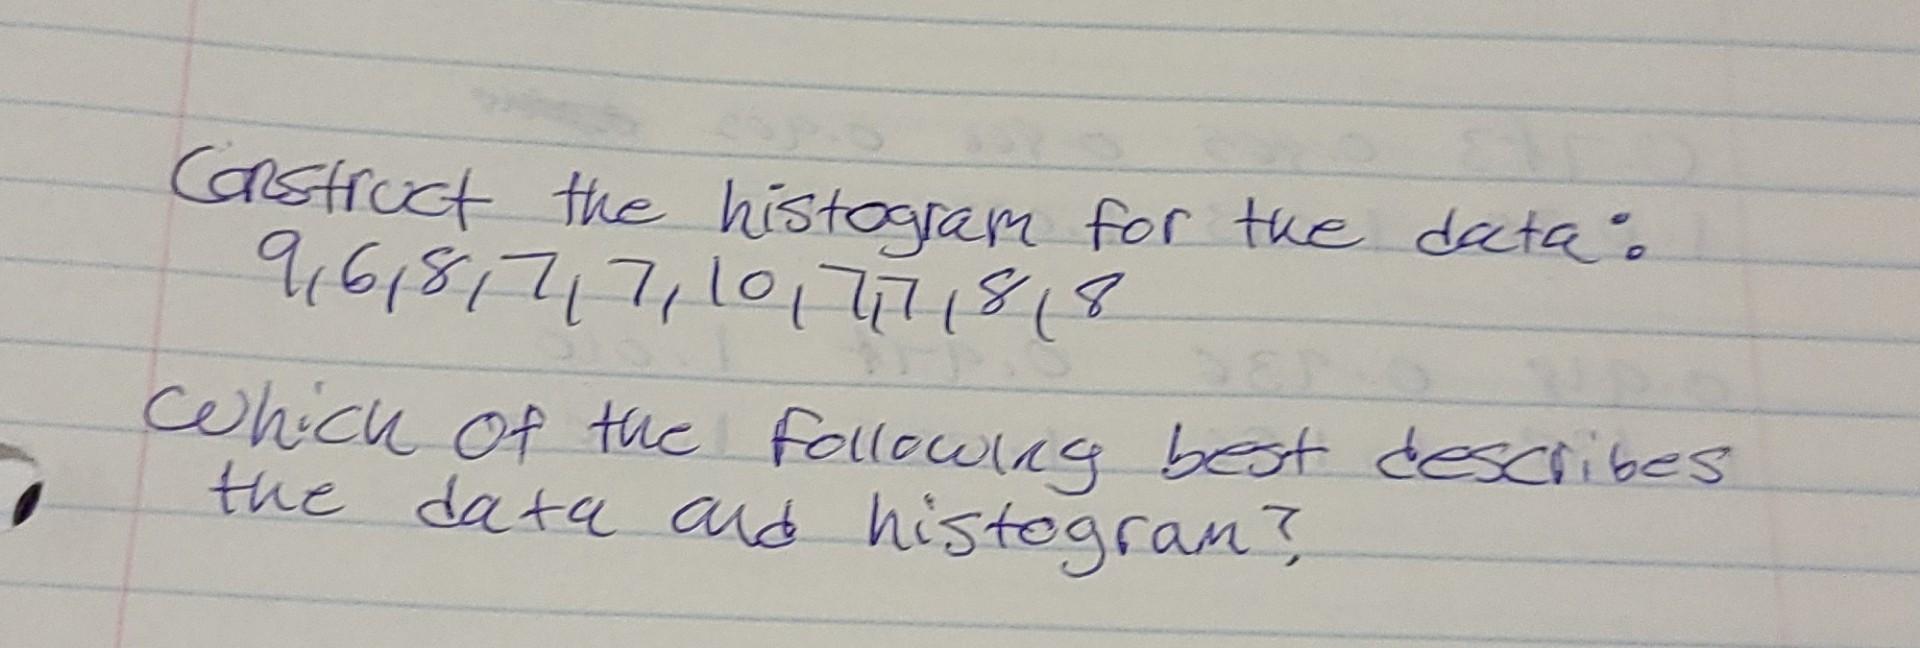 Construct the histogram for the data:
9,6,8,7,7,10,7,7,8,8
Which of the following best describes
the data and histogram?